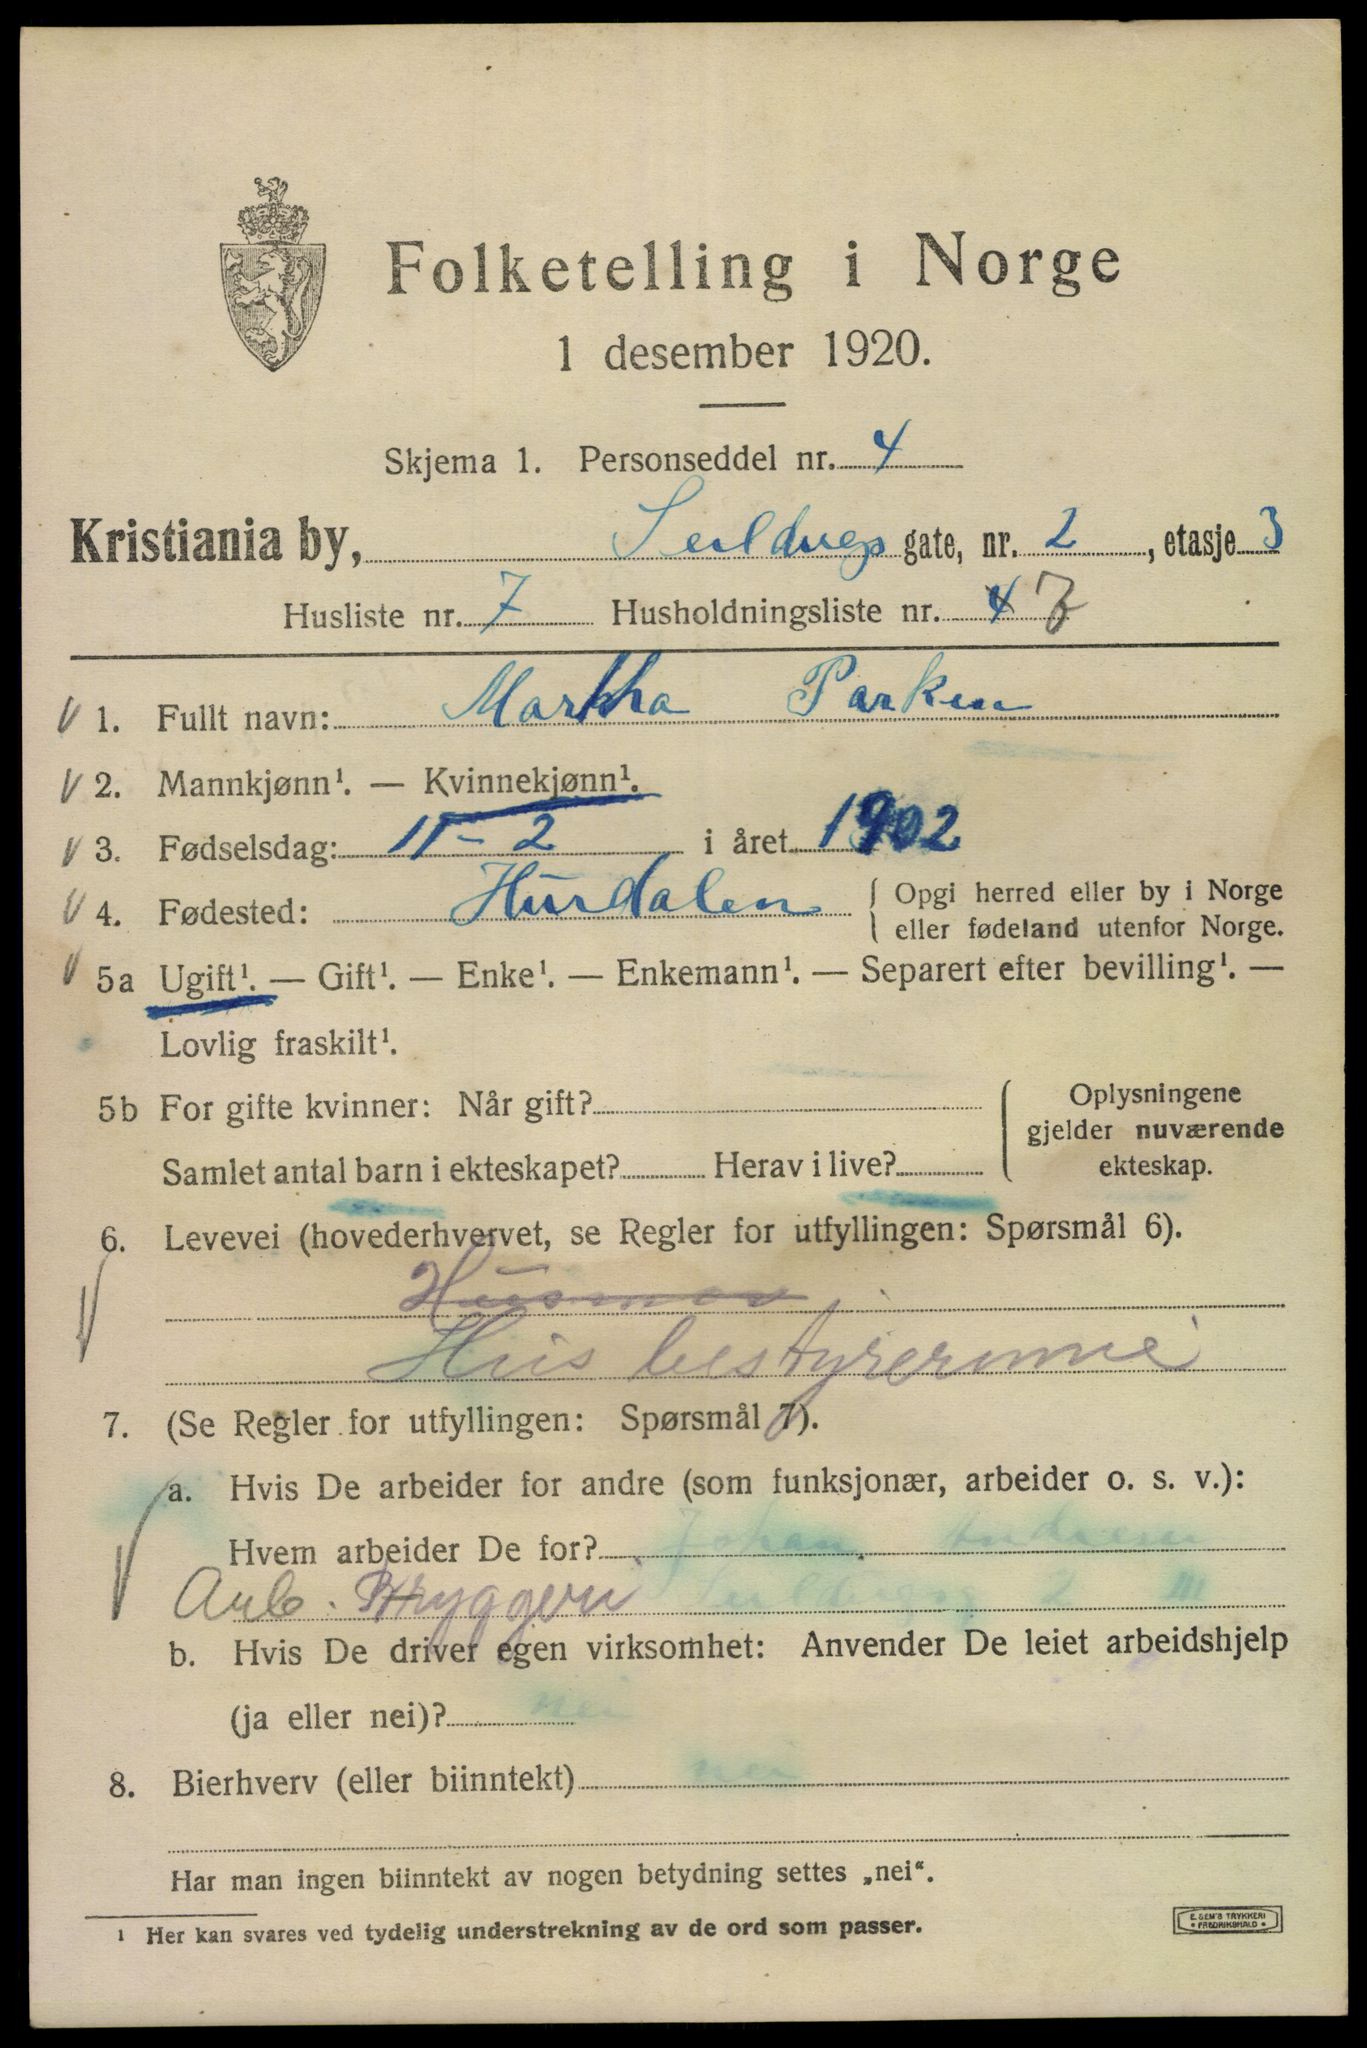 Folketelling i Norge
1 desember 1920.
Skjema 1. Personseddel nr. 4
Kristiania by, Seildugs gate, nr. 2, etasje 3
Husliste nr. 7 Husholdningsliste nr. 4 7
1. Fullt navn: Martha Parken
2. Mannkjønn¹. — Kvinnekjønn¹.
3. Fødselsdag: 11 - 2 i året 1902
4. Fødested: Hurdalen { Opgi herred eller by i Norge
eller fødeland utenfor Norge.
5a Ugift¹. — Gift¹. — Enke¹. — Enkemann¹. — Separert efter bevilling¹. —
Lovlig fraskilt¹.
5b For gifte kvinner: Når gift? { Oplysningene
gjelder nuværende
Samlet antal barn i ekteskapet? Herav i live? ekteskap.
6. Levevei (hovederhvervet, se Regler for utfyllingen: Spørsmål 6).
Husmor
Husbestyrerinne
7. (Se Regler for utfyllingen: Spørsmål 7).
a. Hvis De arbeider for andre (som funksjonær, arbeider o. s. v.):
Hvem arbeider De for? Johan
Arb. Bryggeri Seildugsg 2 III
b. Hvis De driver egen virksomhet: Anvender De leiet arbeidshjelp
(ja eller nei)? nei
8. Bierhverv (eller biinntekt) nei
Har man ingen biinntekt av nogen betydning settes „nei“.
¹ Her kan svares ved tydelig understrekning av de ord som passer.
E. SEM'S TRYKKERI
• FREDRIKSHALD •